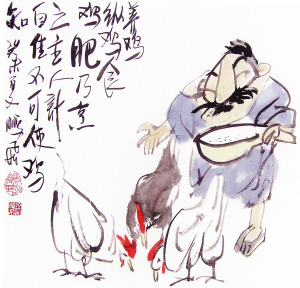 养鸡
纵鸡食
鸡肥乃烹
之主人计
自佳不可使鸡
知 癸未夏